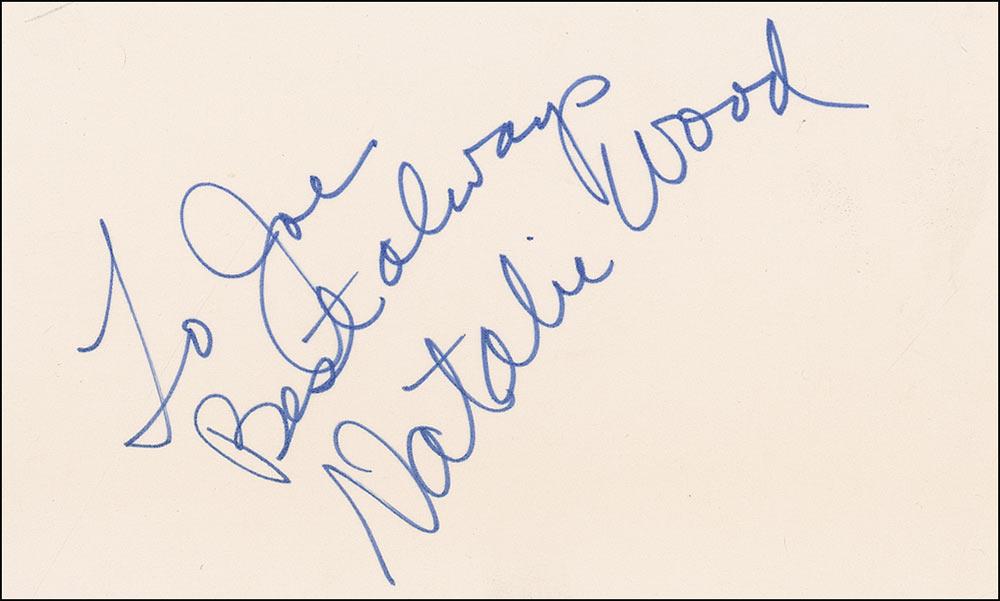 To Joe
Best always
Natalie Wood